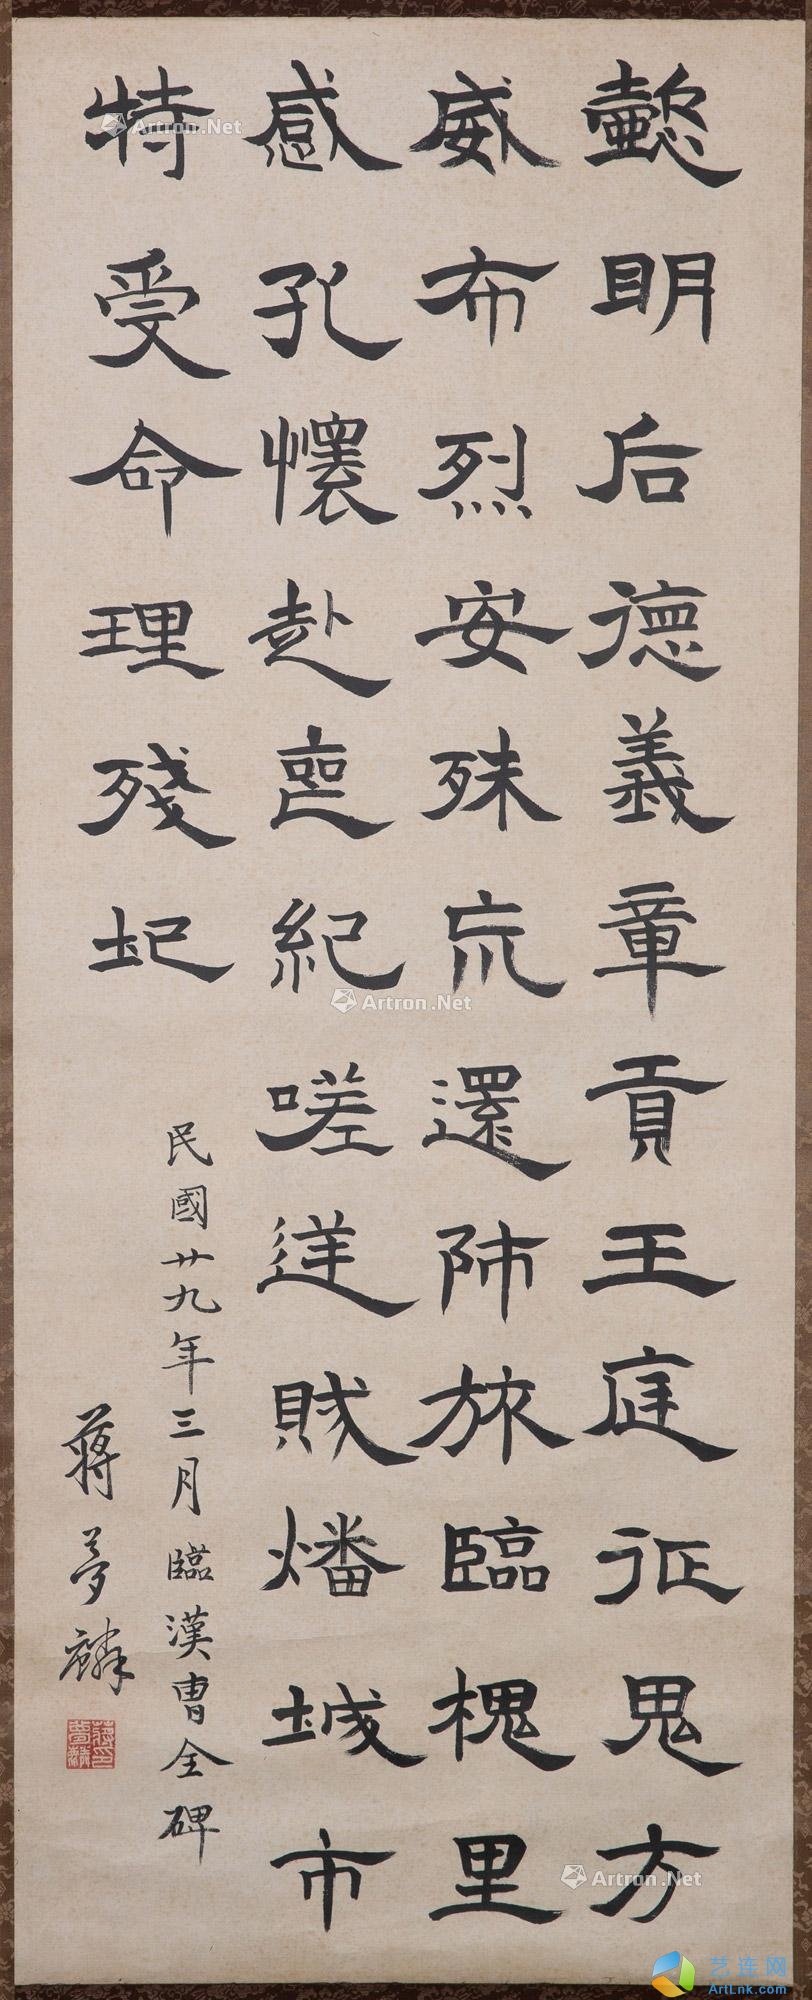 懿明后德義章貢王庭征鬼方
威布烈安殊巟還師旅臨槐里
感孔懷赴喪紀嗟逆賊燔城市
特受命理殘圮
民國廿九年三月臨漢曹全碑
蔣夢麟
蔣印夢麟
Artron.Net
Artron.Net
Artron.Net
艺连网
ArtLnk.com